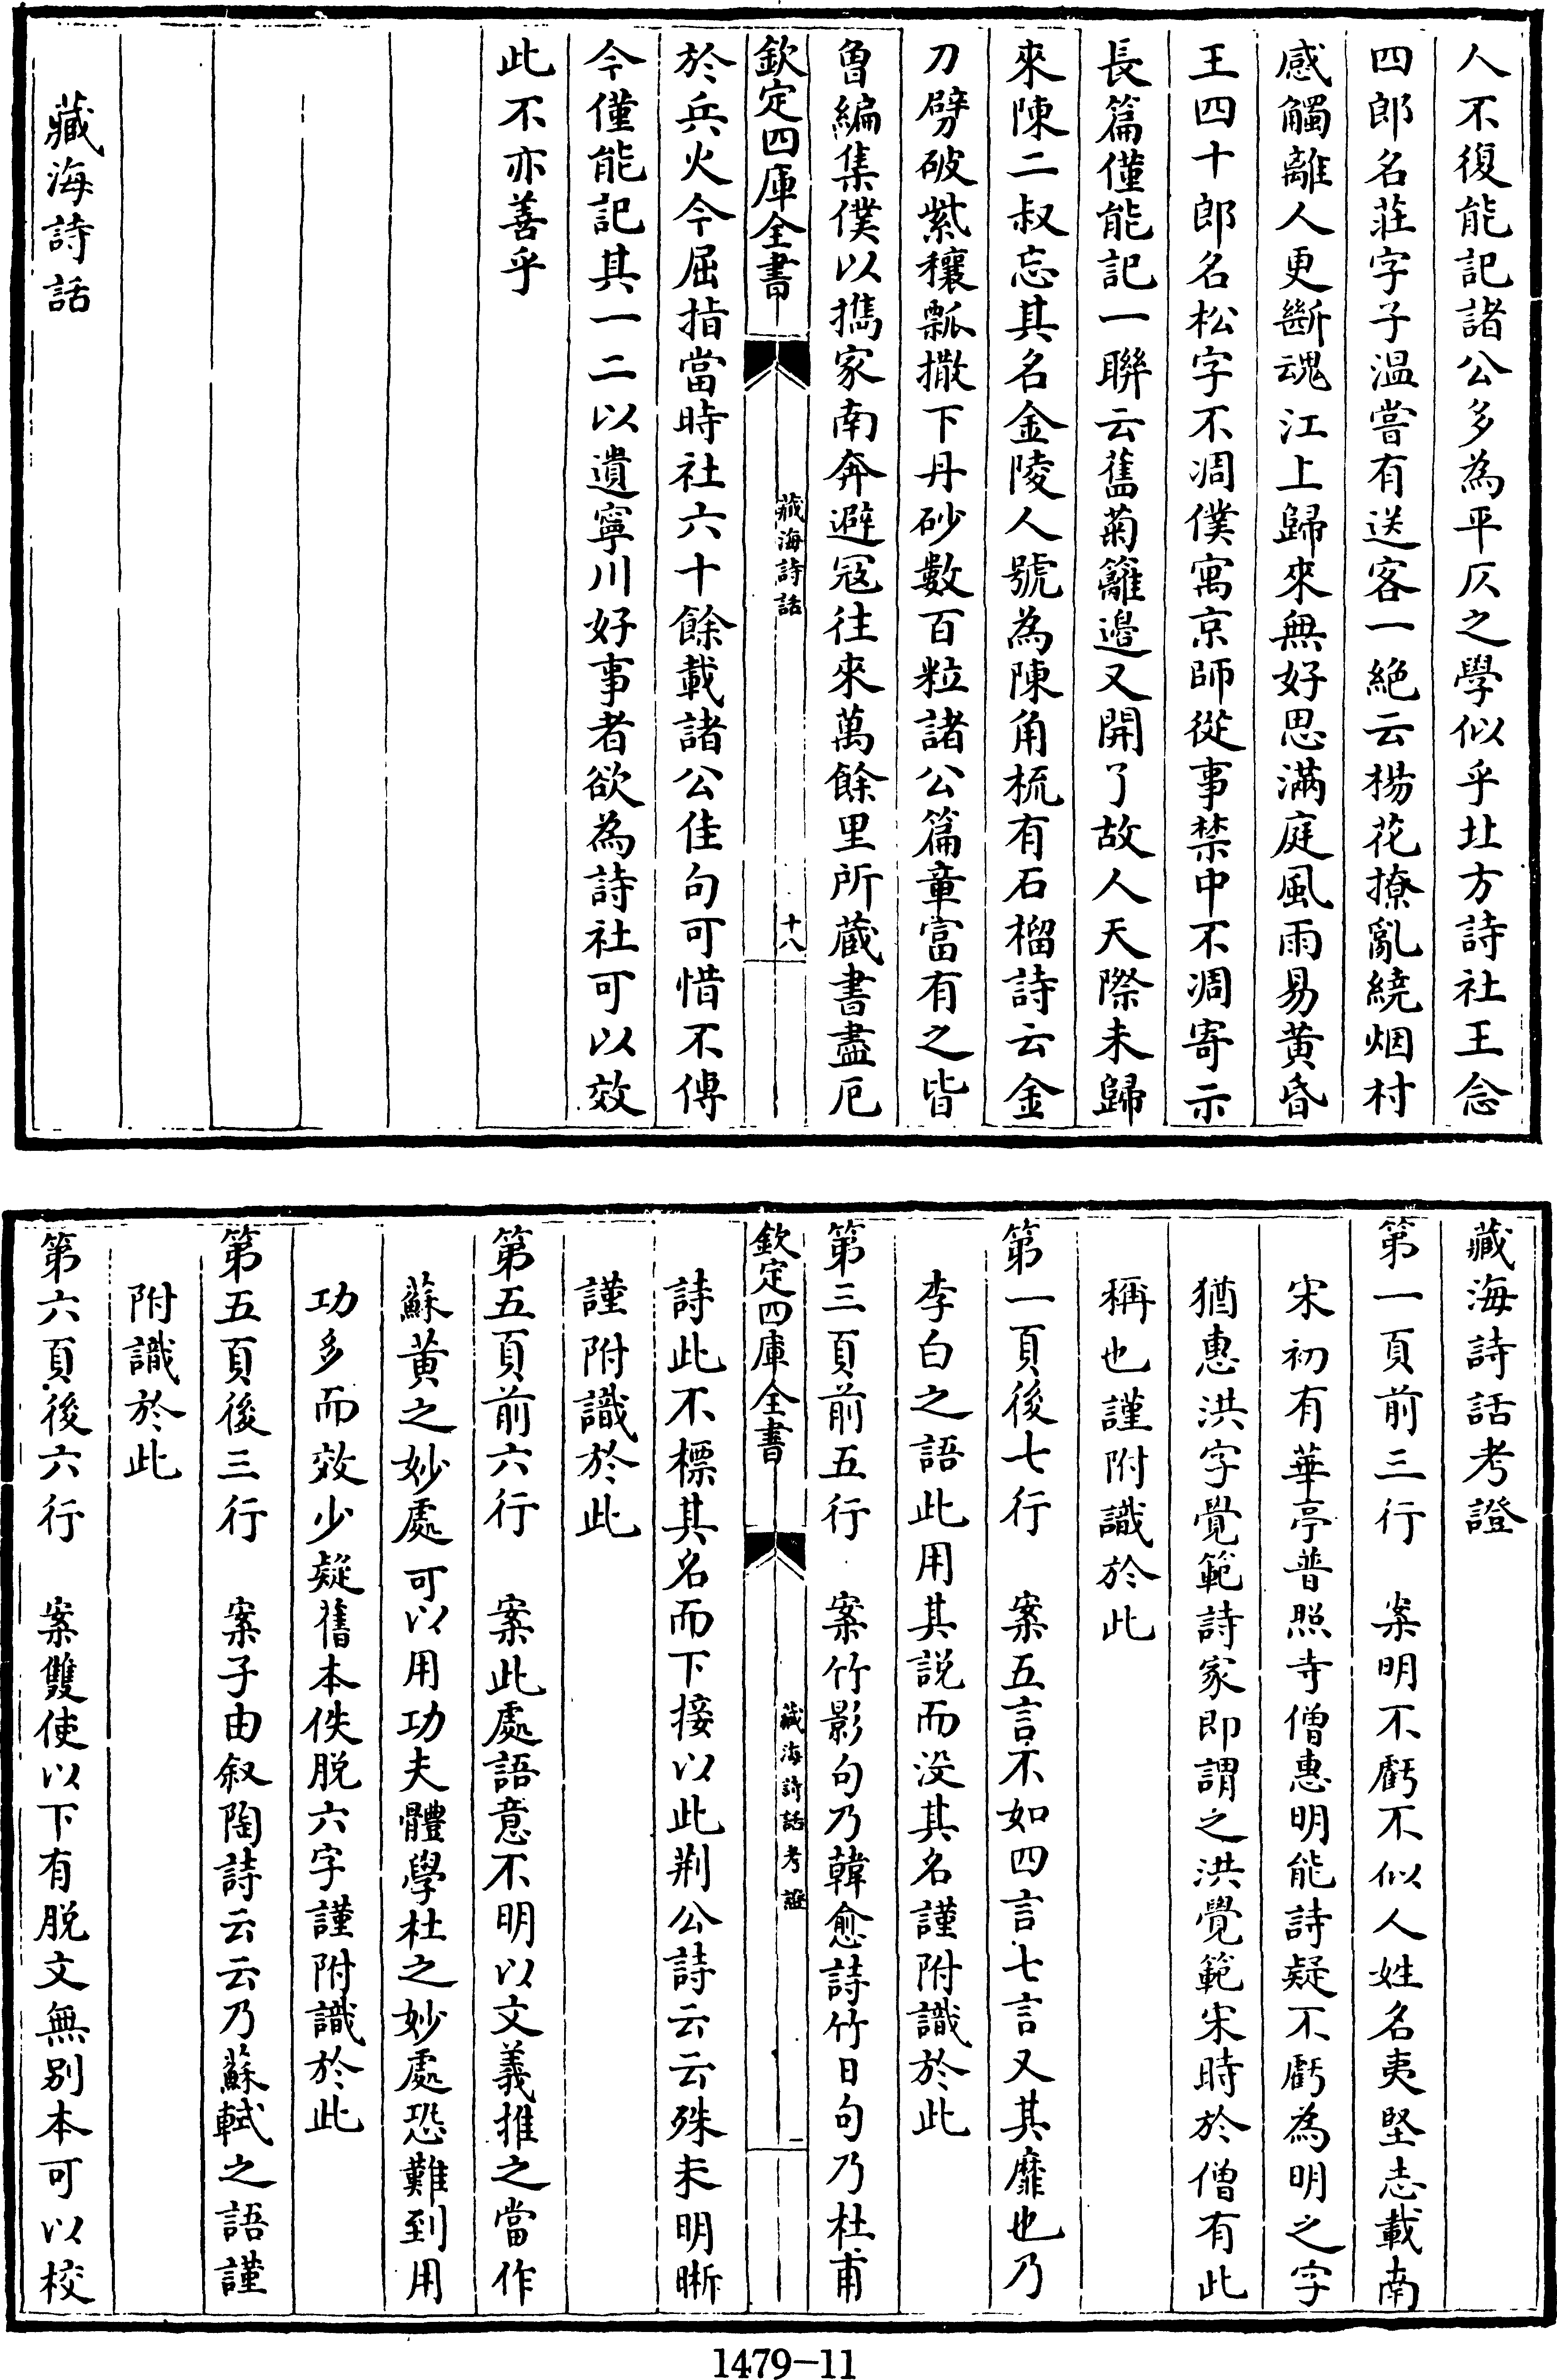 人不復能記諸公多為平仄之學似乎北方詩社王念
四郎名莊字子温嘗有送客一絶云楊花撩亂繞烟村
感觸離人更斷魂江上歸來無好思滿庭風雨易黄昏
王四十郎名松字不凋僕寓京師從事禁中不凋寄示
長篇僅能記一聯云舊菊籬邉又開了故人天際未歸
來陳二叔忘其名金陵人號為陳角梳有石榴詩云金
刀劈破紫穰瓢撒下丹砂數百粒諸公篇章富有之皆
曾編集僕以擕家南奔避冦往來萬餘里所蔵書盡厄
欽定四庫全書
藏海詩話
十八
於兵火今屈指當時社六十餘載諸公佳句可惜不傳
今僅能記其一二以遺寧川好事者欲為詩社可以效
此不亦善乎
藏海詩話
藏海詩話考證
第一頁前三行 案明不虧不似人姓名夷堅志載南
宋初有華亭普照寺僧惠明能詩疑不虧為明之字
猶惠洪字覺範詩家即謂之洪覺範宋時於僧有此
稱也謹附識於此
第一頁後七行 案五言不如四言七言又其靡也乃
李白之語此用其説而没其名謹附識於此
第三頁前五行 案竹影句乃韓愈詩竹日句乃杜甫
欽定四庫全書
藏海詩話考證
一
詩此不標其名而下接以此荆公詩云云殊未明晰
謹附識於此
第五頁前六行 案此處語意不明以文義推之當作
蘇黄之妙處可以用功夫體學杜之妙處恐難到用
功多而效少疑舊本佚脱六字謹附識於此
第五頁後三行 案子由叙陶詩云云乃蘇軾之語謹
附識於此
第六頁後六行 案雙使以下有脱文無别本可以校
1479-11